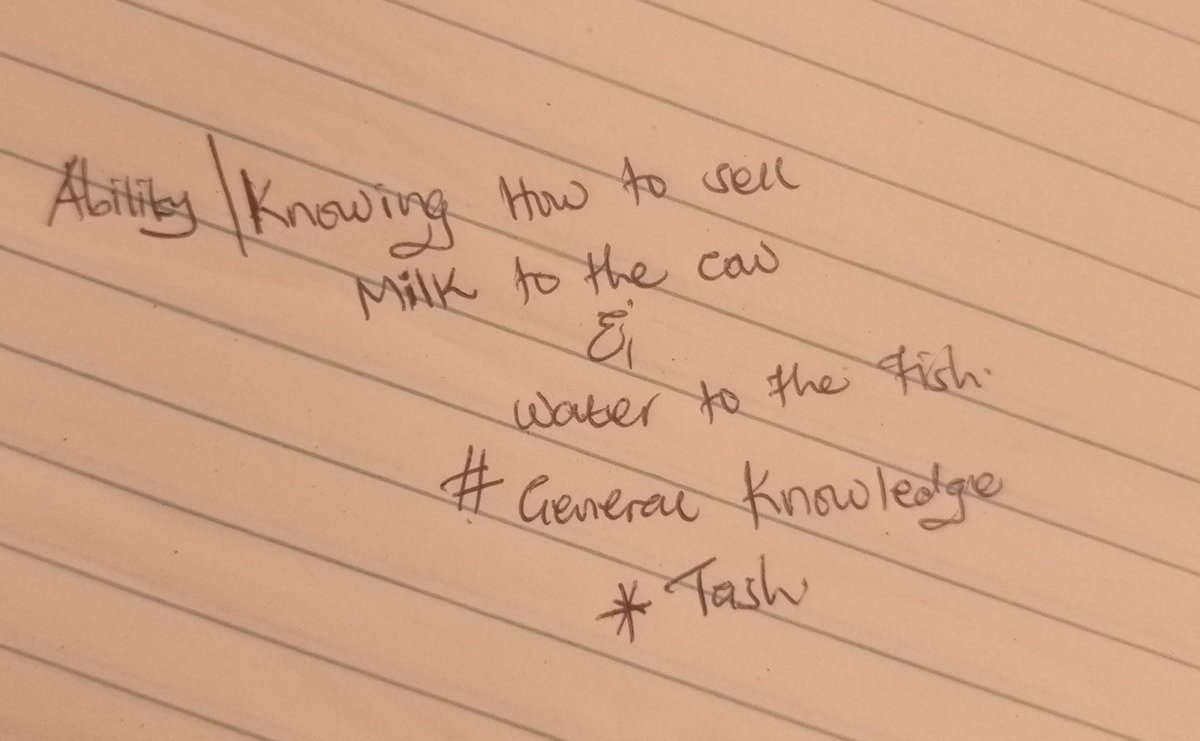 Ability | Knowing How to sell
Milk to the cow
&
water to the fish.
# General Knowledge
* Tash